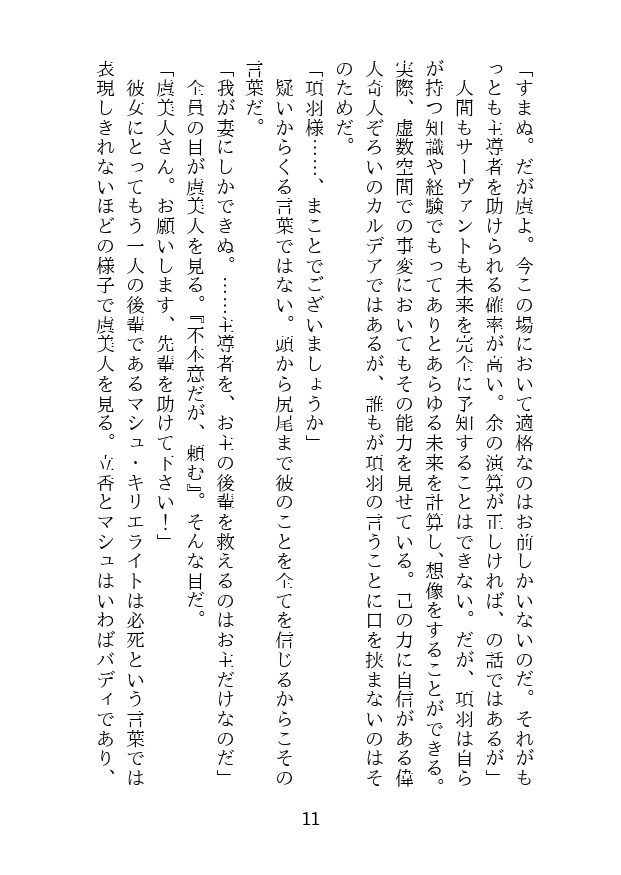 「すまぬ。だが虞よ。今この場において適格なのはお前しかいないのだ。それがも
っとも主導者を助けられる確率が高い。余の演算が正しければ、の話ではあるが」
　人間もサーヴァントも未来を完全に予知することはできない。だが、項羽は自ら
が持つ知識や経験でもってありとあらゆる未来を計算し、想像をすることができる。
実際、虚数空間での事変においてもその能力を見せている。己の力に自信がある偉
人奇人ぞろいのカルデアではあるが、誰もが項羽の言うことに口を挟まないのはそ
のためだ。
「項羽様……、まことでございましょうか」
　疑いからくる言葉ではない。頭から尻尾まで彼のことを全てを信じるからこその
言葉だ。
「我が妻にしかできぬ。……主導者を、お主の後輩を救えるのはお主だけなのだ」
　全員の目が虞美人を見る。『不本意だが、頼む』。そんな目だ。
「虞美人さん。お願いします、先輩を助けて下さい！」
　彼女にとってもう一人の後輩であるマシュ・キリエライトは必死という言葉では
表現しきれないほどの様子で虞美人を見る。立香とマシュはいわばバディであり、
11